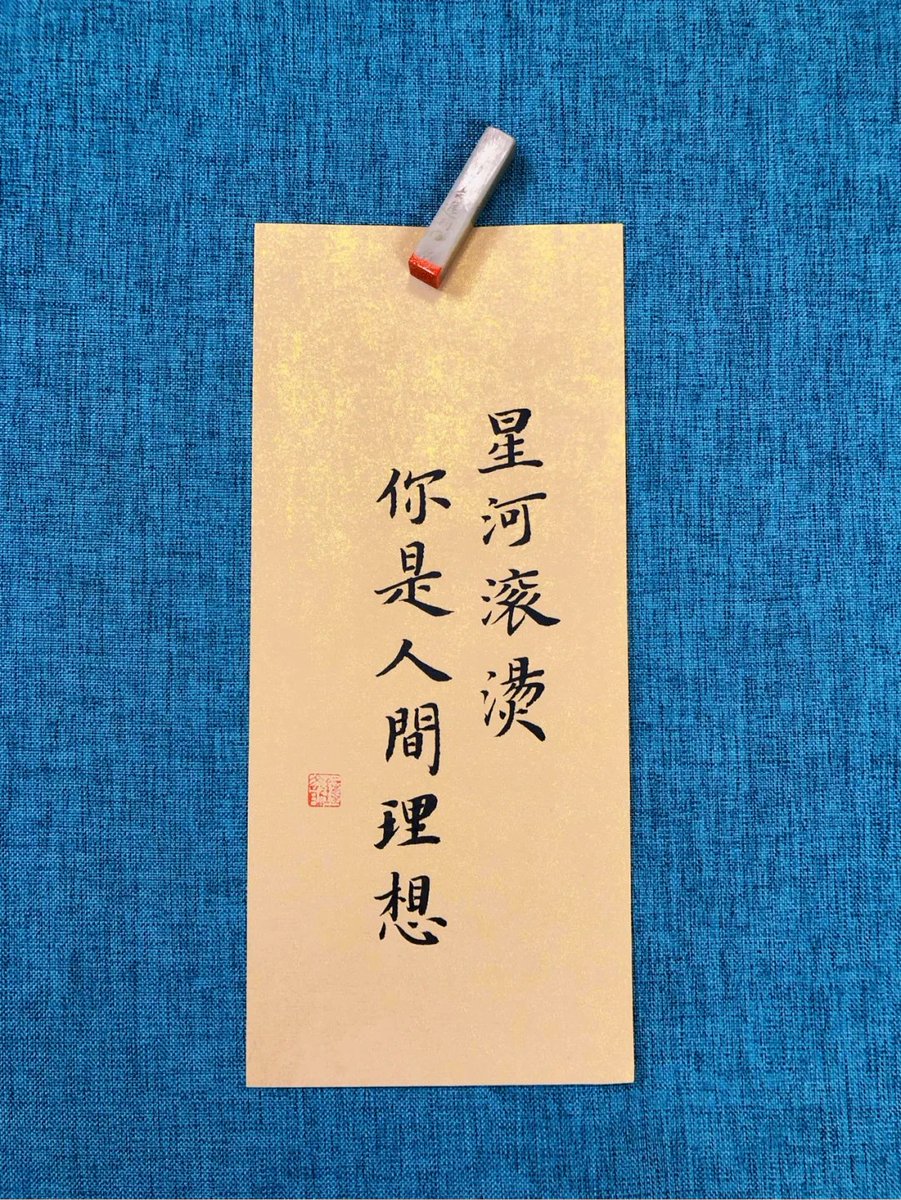 星河滚燙
你是人間理想